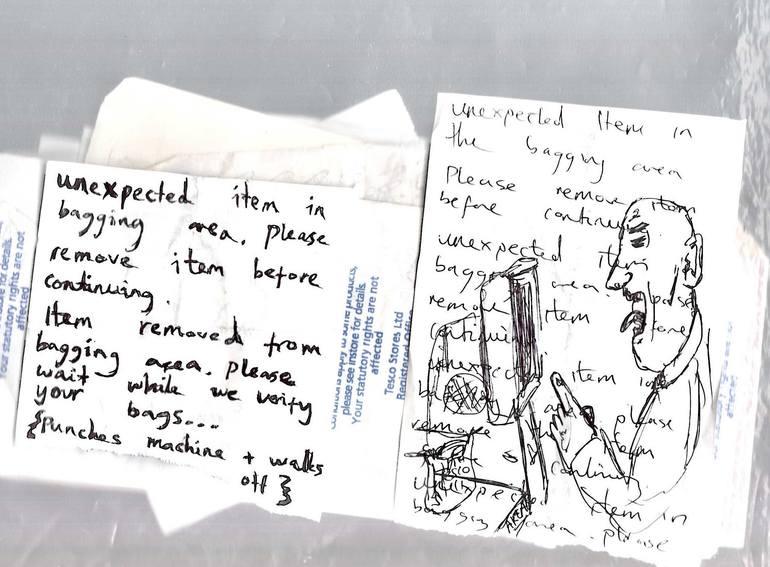 your statutory rights are not
affected
unexpected item in
bagging area. please
remove item before
continuing.
Item removed from
bagging area. please
wait while we verify
your bags...
{Punches machine + walks
off}
apply to some products,
please see instore for details.
Your statutory rights are not
affected
Tesco Stores Ltd
Registered
unexpected Item in
the bagging area
Please remove item
before continu
unexpected item
bagg area.
remove Item
continuin
unexpec item in
ba please
remove
continu
unexpec item in
bagging area please